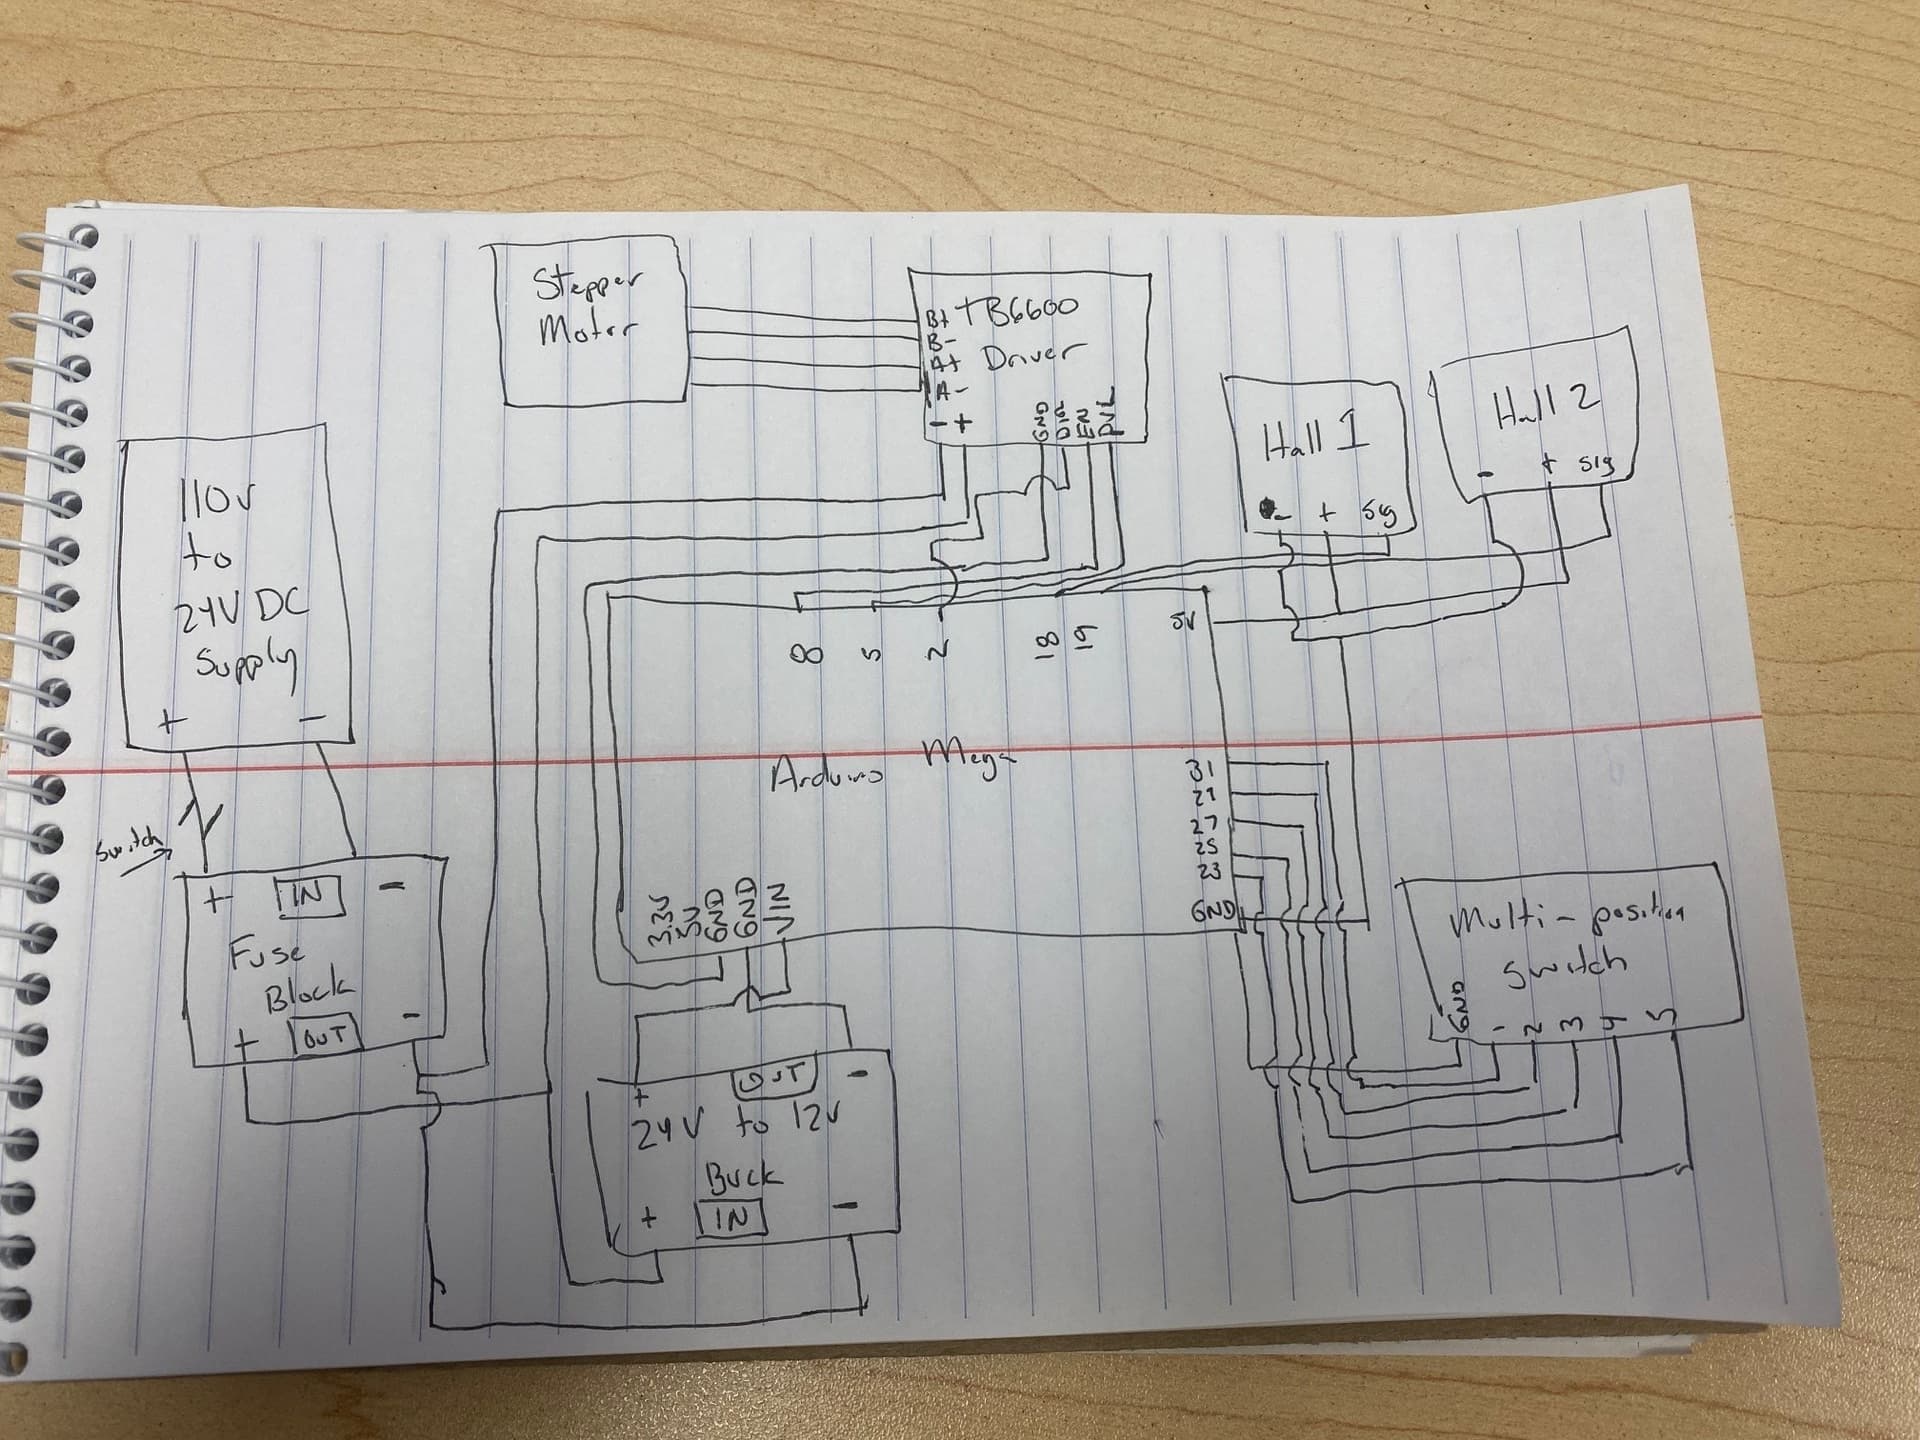 Stepper
Motor
B+ TB6600
B-
A+ Driver
A-
- +
GND
DIR
EN
PUL
Hall 1
- + sig
Hall 2
- + sig
110v
to
24V DC
Supply
+ -
Switch
+ IN -
Fuse
Block
+ OUT -
8
5
2
18
19
5V
Arduino Mega
31
29
27
25
23
GND
3.3V
5V
GND
GND
VIN
+ OUT -
24V to 12V
Buck
+ IN -
Multi-position
Switch
GND
1
2
3
4
5